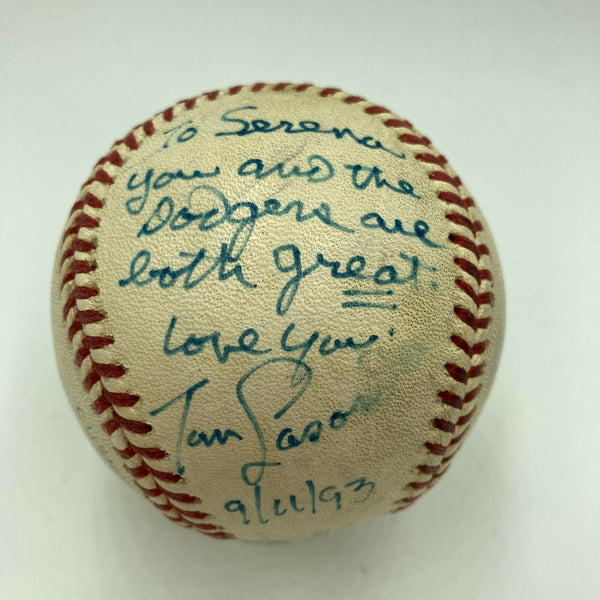 To Serena
you and the
Dodgers are
both great.
love you.
Tom Lasorda
9/11/93